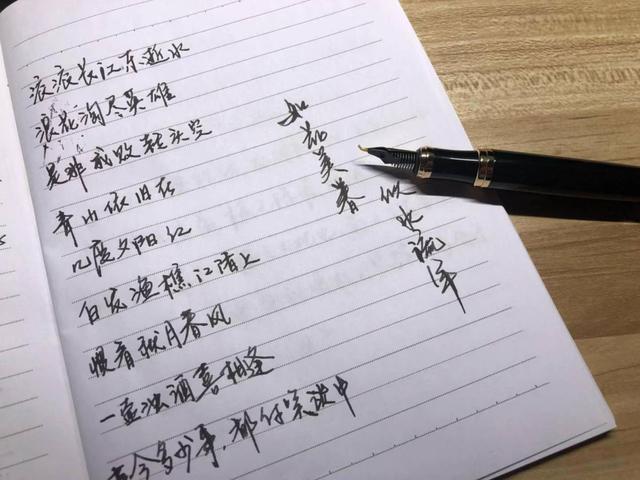 滚滚长江东逝水
浪花淘尽英雄
是非成败转头空
青山依旧在
几度夕阳红
白发渔樵江渚上
惯看秋月春风
一壶浊酒喜相逢
古今多少事，都付笑谈中
如花美眷
似水流年